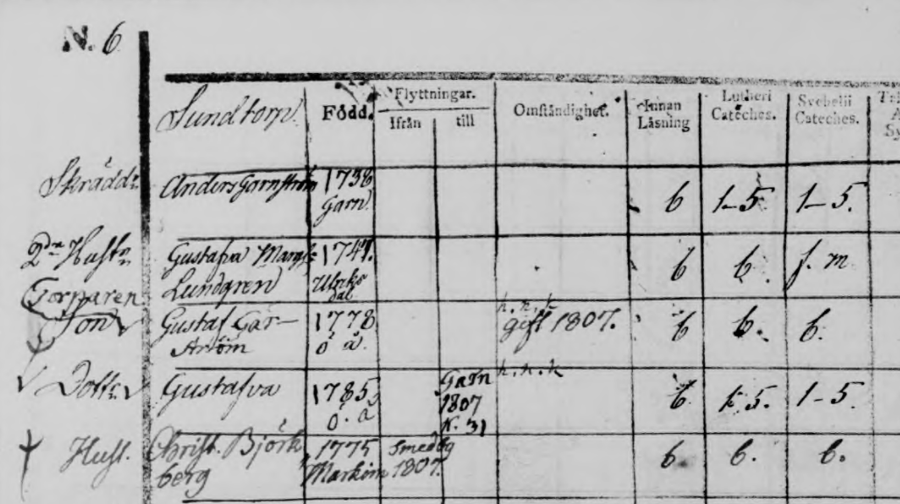 N. 6
Sundtorp. Född. Flyttningar. Ifrån till Omständighet. Innan Läsning Lutheri Cateches. Svebelii Cateches.
Skrädd. Anders Garnström 1738 6 1-5 1-5.
Garn.
2dra Hustr. Gustafva Margr. 1747. 6 6. f. m
Lundgren Ulriks
dal
Torparen h. n. k
Son Gustaf Gar- 1778 gift 1807. 6 6. 6.
ström ö å.
h. n. k
Dottr. Gustafva 1785 Garn 6. 1-5. 1-5.
ö. å 1807
N. 31
Hust. Christ. Björk 1775 Smedby 6 6. 6.
berg Markim 1807.